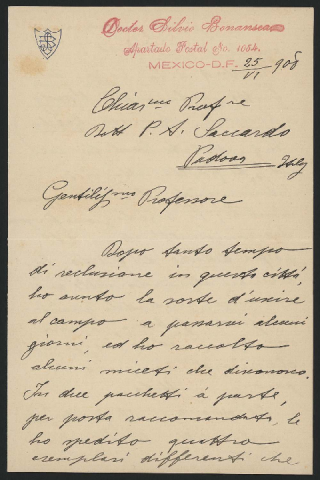 Doctor Silvio Bonansea
Apartado Postal No. 1054.
MEXICO-D.F. 25/VI 908
Chiar.mo Prof.re
Dott P. A. Saccardo
Padova Italy
Gentiliss.mo Professore
Dopo tanto tempo
di reclusione in questa città,
ho avuto la sorte d'
al campo a passarvi alcuni
giorni, ed ho raccolto
alcuni miceti che disconosco.
In due pacchetti à parte,
per posta raccomandata, le
ho spedito quattro
esemplari differenti che